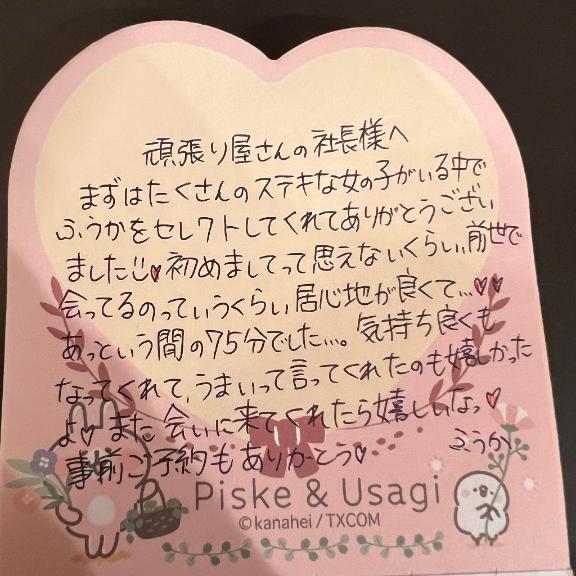 頑張り屋さんの社長様へ
まずはたくさんのステキな女の子がいる中で
ふうかをセレクトしてくれてありがとうござい
ました!!♥初めましてって思えないくらい、前世で
会ってるのっていうくらい居心地が良くて...♥♥
あっという間の75分でした...。気持ち良くも
なってくれて、うまいって言ってくれたのも嬉しかった
よ♥また会いに来てくれたら嬉しいなっ♥
ふうか
事前ご予約もありがとう♥
Piske & Usagi
©kanahei / TXCOM